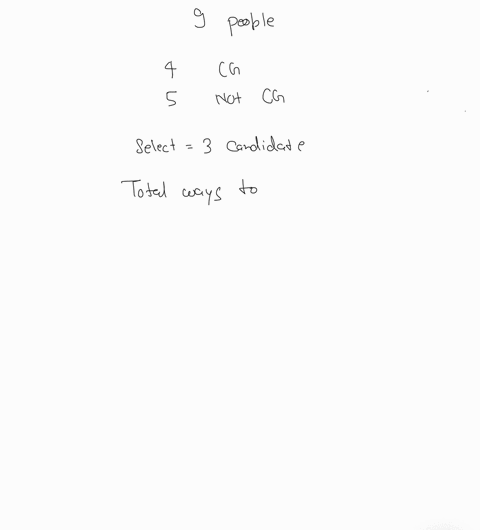 9 people
4 CG
5 Not CG
Select = 3 candidate
Total ways to